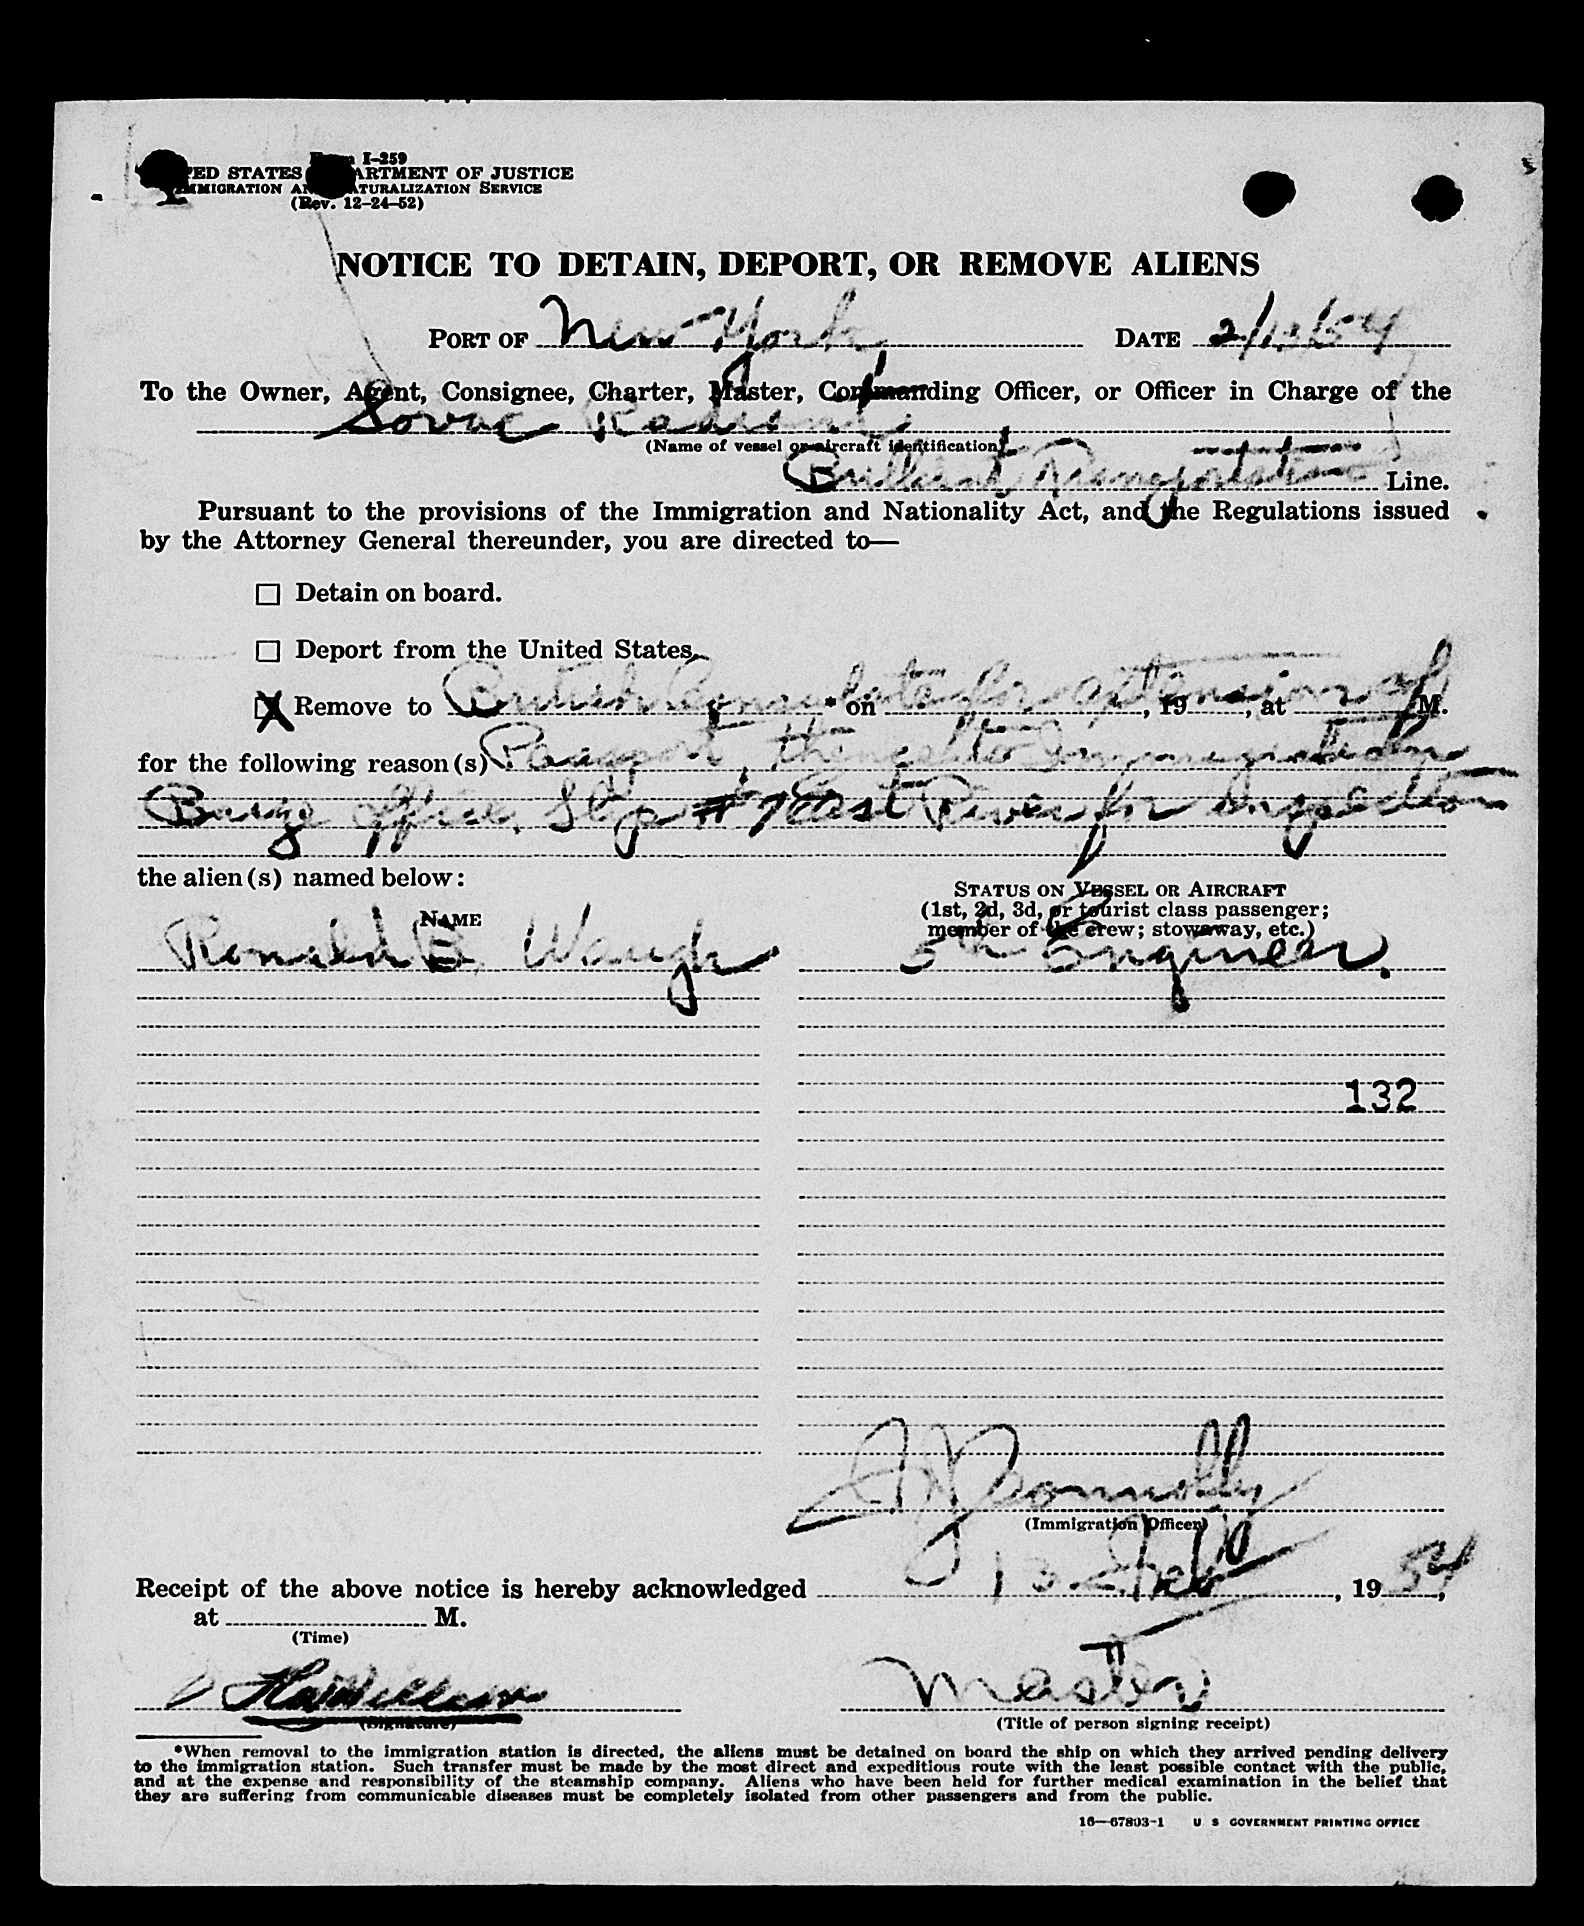 Form I-259
UNITED STATES DEPARTMENT OF JUSTICE
IMMIGRATION AND NATURALIZATION SERVICE
(Rev. 12-24-52)
NOTICE TO DETAIN, DEPORT, OR REMOVE ALIENS
PORT OF New York DATE 2/13/54
To the Owner, Agent, Consignee, Charter, Master, Commanding Officer, or Officer in Charge of the
Sovac Radiant
(Name of vessel or aircraft identification)
Brilliant Transportation Line.
Pursuant to the provisions of the Immigration and Nationality Act, and the Regulations issued
by the Attorney General thereunder, you are directed to—
☐ Detain on board.
☐ Deport from the United States.
☒ Remove to British Consulate for extension of * on , 19 , at M.
for the following reason(s) Passport, thence to Immigration
Barge Office, Slip # 7 East River for inspection
the alien(s) named below:
NAME
STATUS ON VESSEL OR AIRCRAFT
(1st, 2d, 3d, or tourist class passenger;
member of the crew; stowaway, etc.)
Ronald E. Waugh 5th Engineer.
132
Connolly
(Immigration Officer)
Receipt of the above notice is hereby acknowledged 13 Feb , 19 54,
at M.
(Time)
Master
(Signature) (Title of person signing receipt)
*When removal to the immigration station is directed, the aliens must be detained on board the ship on which they arrived pending delivery
to the immigration station. Such transfer must be made by the most direct and expeditious route with the least possible contact with the public,
and at the expense and responsibility of the steamship company. Aliens who have been held for further medical examination in the belief that
they are suffering from communicable diseases must be completely isolated from other passengers and from the public.
16—67803-1 U S GOVERNMENT PRINTING OFFICE